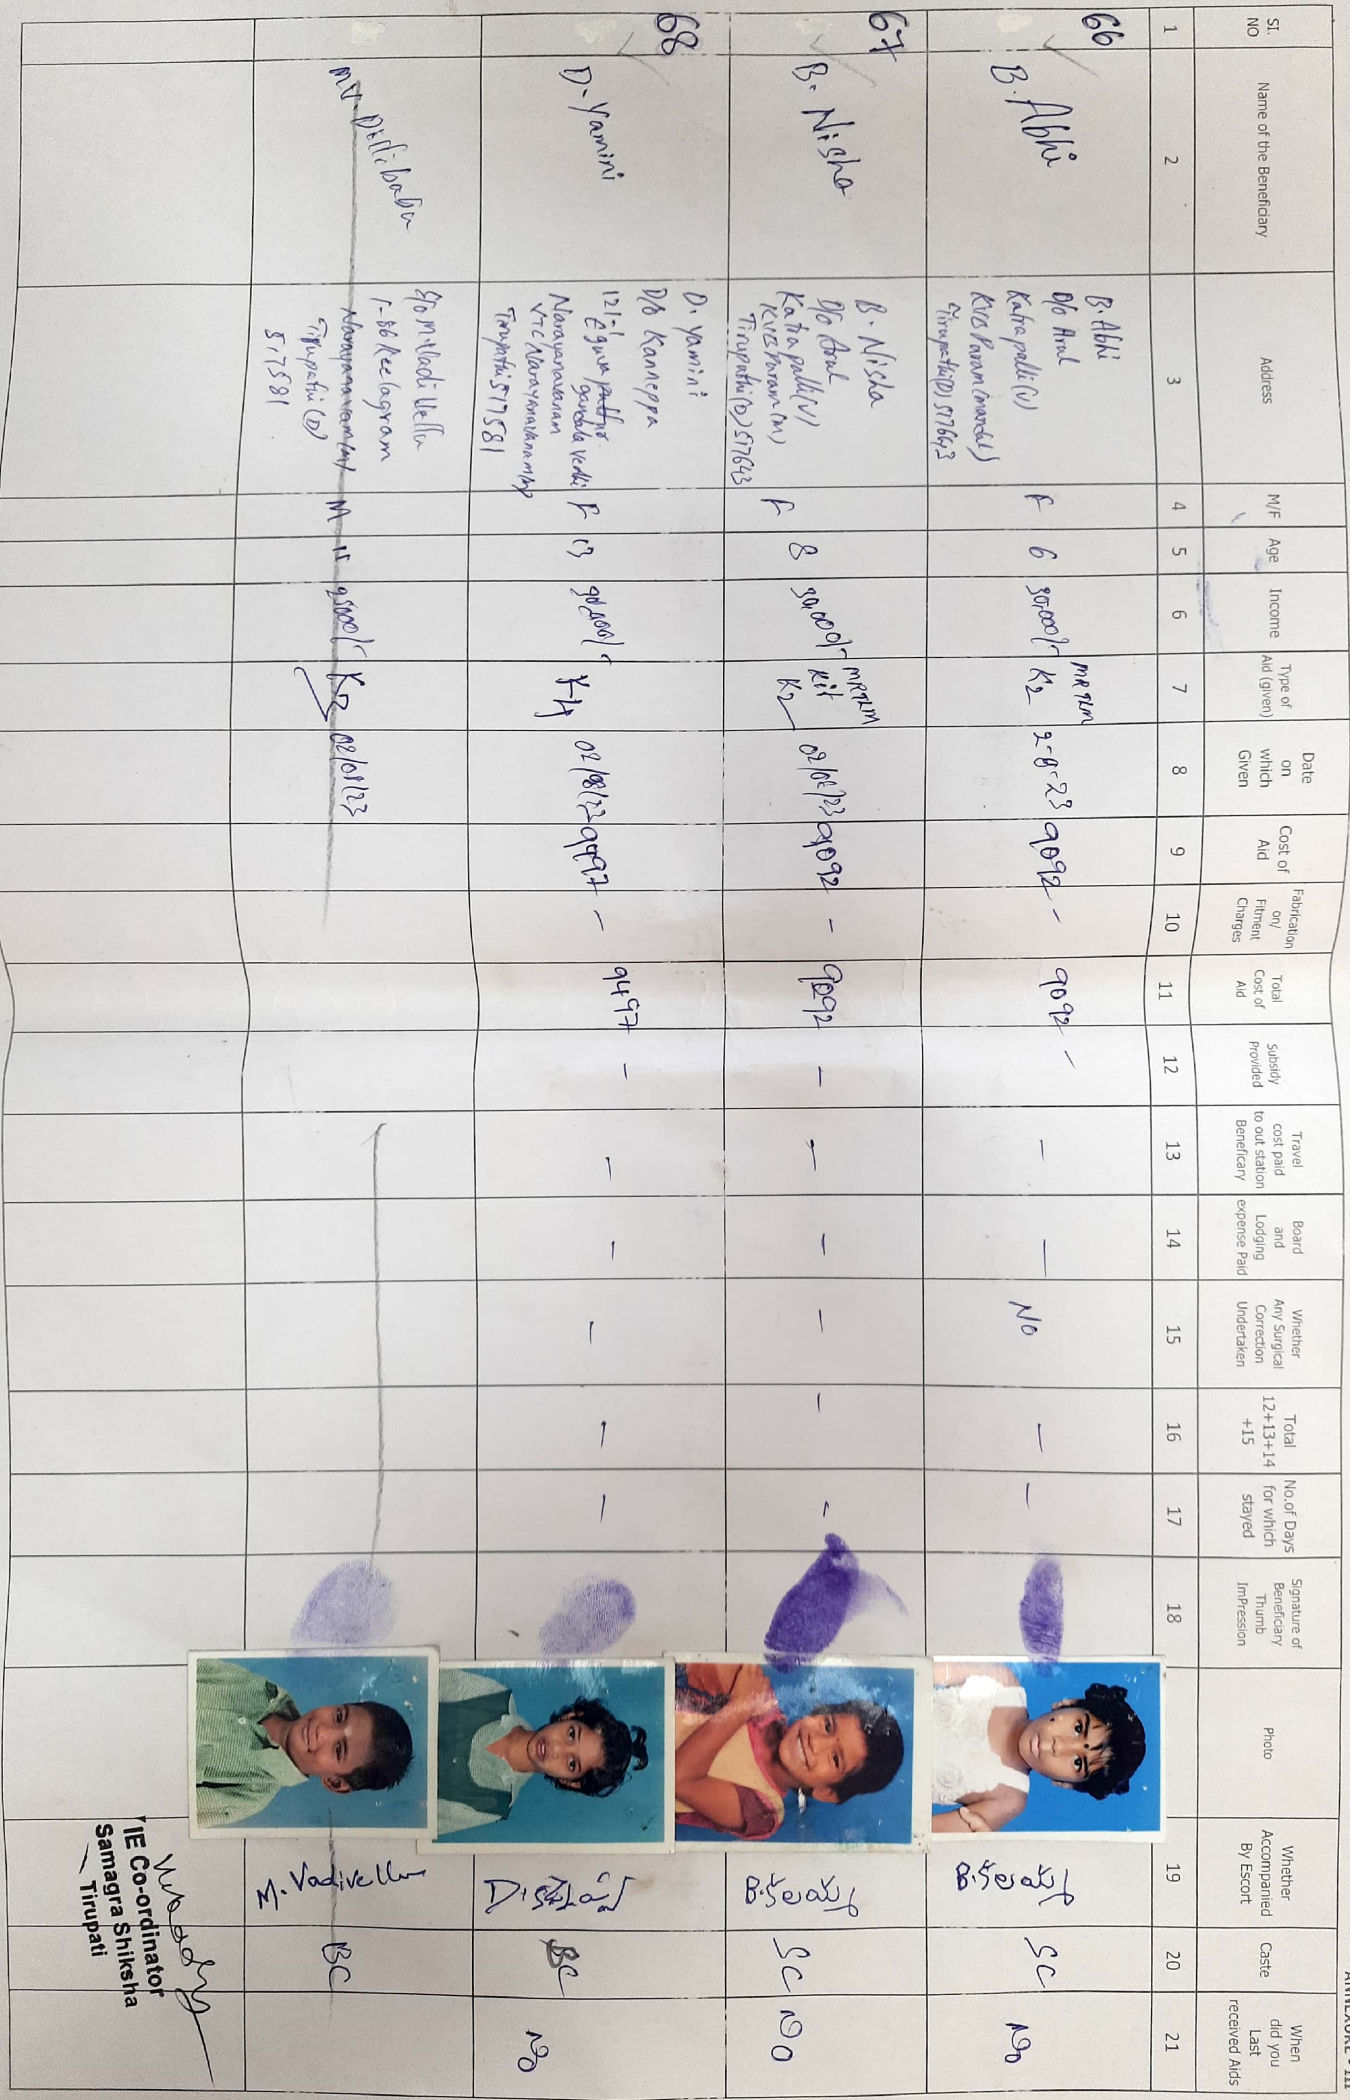 ANNEXURE - III
Sl. NO
Name of the Beneficiary
Address
M/F
Age
Income
Type of Aid (given)
Date on which Given
Cost of Aid
Fabrication on/ Fitment Charges
Total Cost of Aid
Subsidy Provided
Travel cost paid to out station Beneficary
Board and Lodging expense Paid
Whether Any Surgical Correction Undertaken
Total 12+13+14 +15
No.of Days for which stayed
Signature of Beneficiary Thumb ImPression
Photo
Whether Accompanied By Escort
Caste
When did you Last received Aids
1 2 3 4 5 6 7 8 9 10 11 12 13 14 15 16 17 18 19 20 21
66
B. Abhi
B. Abhi
D/o Arul
Katrapalli(V)
KVB Param(mandal)
Tirupathi(D) 517643
F 6 30,000/- MR TLM K2 2-8-23 9092 - 9092 - - - No - -
B. కలమ్మ SC No
67
B. Nisha
B. Nisha
D/o Arul
Katrapalli(V)
KVB Param(m)
Tirupathi(D) 517643
F 8 30,000/- MR TLM Kit K2 02/08/23 9092 - 9092 - - - - - -
B. కలమ్మ SC No
68
D. Yamini
D. Yamini
D/o Kanneppa
12/-1
Narayanavanam
VTC Narayanavanam
Tirupathi 517581
F 13 90,000/- 02/08/23 9497 - 9497 - - - - - -
BC No
MV. Dillibabu
S/o M. Vadivellu
1-86 Keelagram
Narayanavanam(m)
Tirupathi(D)
517581
M 15 95000/- K2 02/08/23
M. Vadivellu BC
IE Co-ordinator
Samagra Shiksha
Tirupati